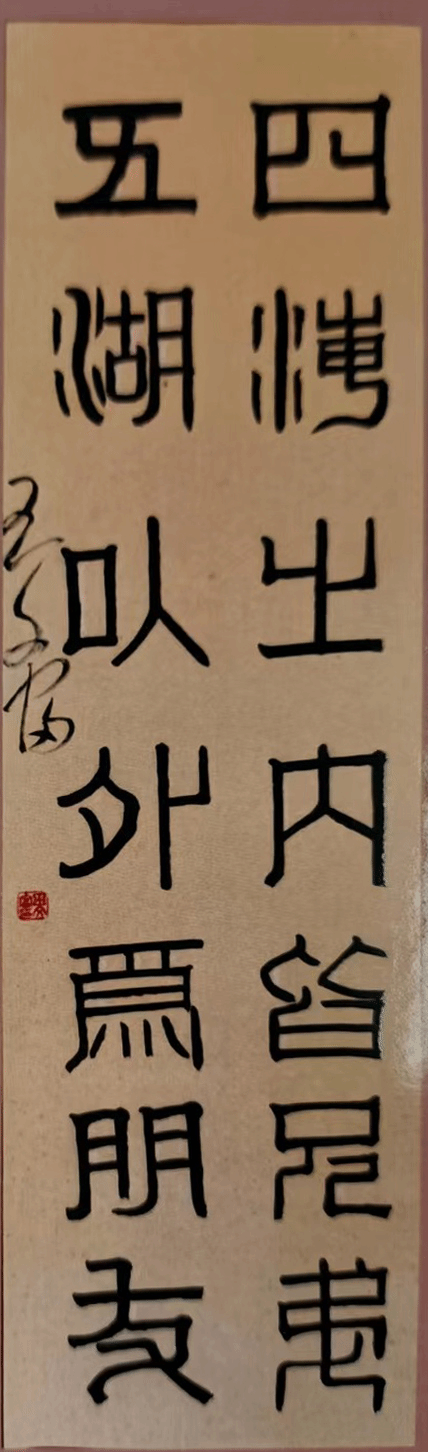 四海之内皆兄弟
五湖以外為朋友